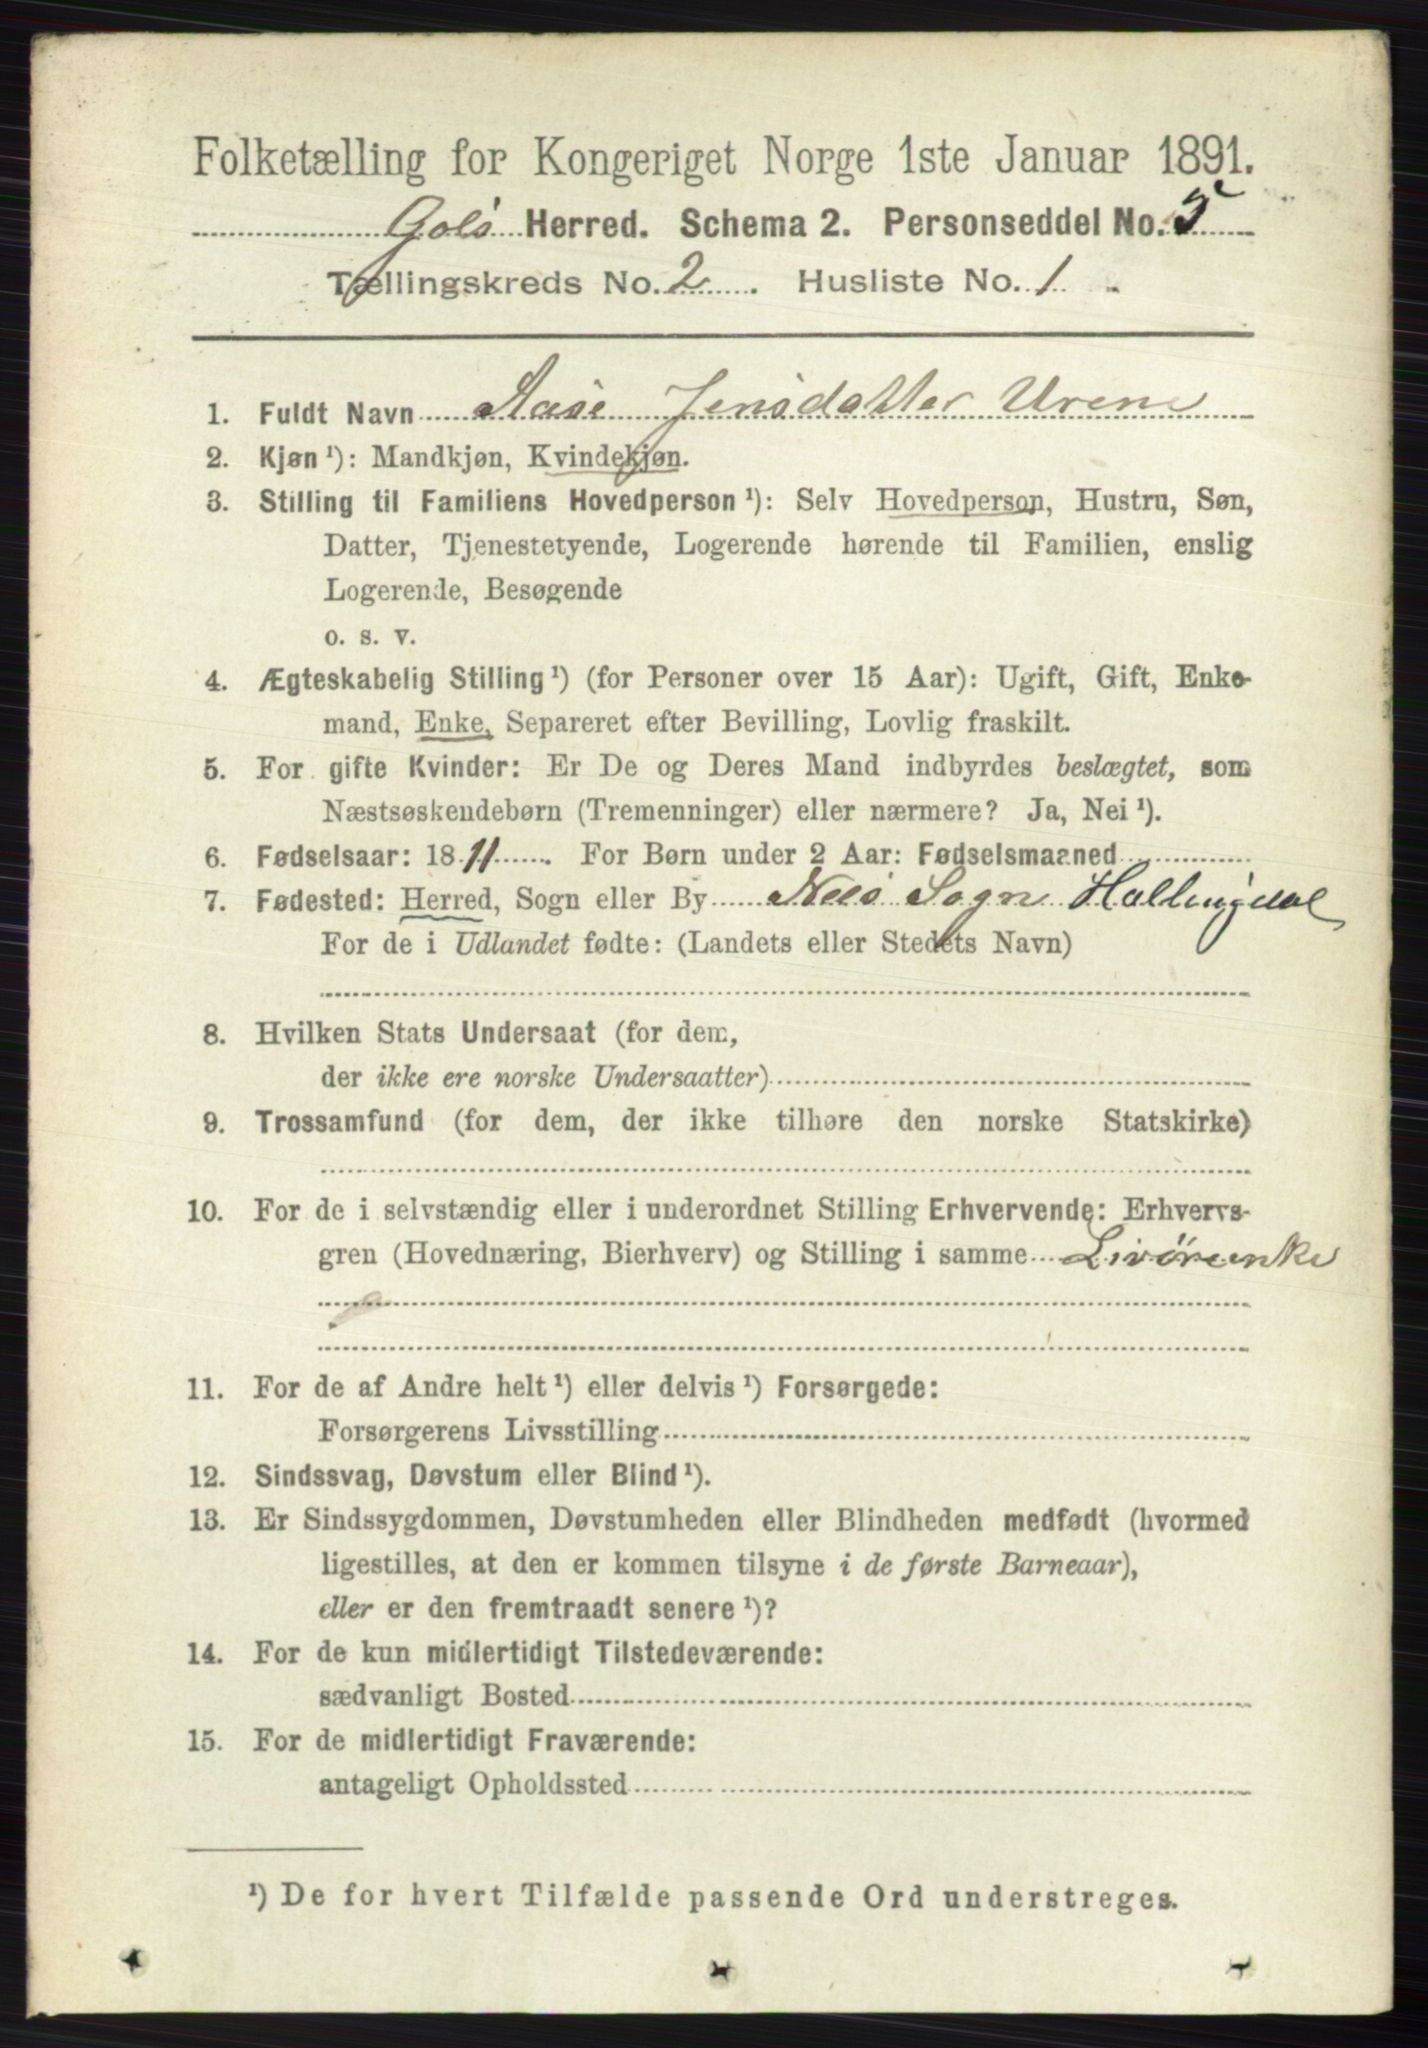 Folketælling for Kongeriget Norge 1ste Januar 1891.
Gols Herred. Schema 2. Personseddel No. 5
Tællingskreds No. 2 . Husliste No. 1
1. Fuldt Navn Aase Jensdatter Urene
2. Kjøn ¹): Mandkjøn, Kvindekjøn.
3. Stilling til Familiens Hovedperson ¹): Selv Hovedperson, Hustru, Søn,
Datter, Tjenestetyende, Logerende hørende til Familien, enslig
Logerende, Besøgende
o. s. v.
4. Ægteskabelig Stilling ¹) (for Personer over 15 Aar): Ugift, Gift, Enke-
mand, Enke, Separeret efter Bevilling, Lovlig fraskilt.
5. For gifte Kvinder: Er De og Deres Mand indbyrdes beslægtet, som
Næstsøskendebørn (Tremenninger) eller nærmere? Ja, Nei ¹).
6. Fødselsaar: 1811. For Børn under 2 Aar: Fødselsmaaned
7. Fødested: Herred, Sogn eller By Nees Sogn Hallingdal
For de i Udlandet fødte: (Landets eller Stedets Navn)
8. Hvilken Stats Undersaat (for dem,
der ikke ere norske Undersaatter)
9. Trossamfund (for dem, der ikke tilhøre den norske Statskirke)
10. For de i selvstændig eller i underordnet Stilling Erhvervende: Erhvervs-
gren (Hovednæring, Bierhverv) og Stilling i samme Livøreenke
11. For de af Andre helt ¹) eller delvis ¹) Forsørgede:
Forsørgerens Livsstilling
12. Sindssvag, Døvstum eller Blind ¹).
13. Er Sindssygdommen, Døvstumheden eller Blindheden medfødt (hvormed
ligestilles, at den er kommen tilsyne i de første Barneaar),
eller er den fremtraadt senere ¹)?
14. For de kun midlertidigt Tilstedeværende:
sædvanligt Bosted
15. For de midlertidigt Fraværende:
antageligt Opholdssted
¹) De for hvert Tilfælde passende Ord understreges.